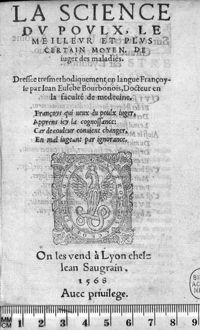 LA SCIENCE
DV POVLX, LE
MEILLEVR ET PLVS
CERTAIN MOYEN, DE
iuger des maladies.
Dressée tresmethodiquement en langue Françoy-
se par Iean Eusebe Bourbonois, Docteur en
la faculté de medecine.
Françoys qui veux du poulx iuger,
Apprens icy la cognoissance:
Car de couleur conuient changer,
En mal iugeant par ignorance.
On les vend à Lyon chelz
Iean Saugrain.
1568
Auec priuilege.
MM
CM
1 2 3 4 5 6 7 8 9